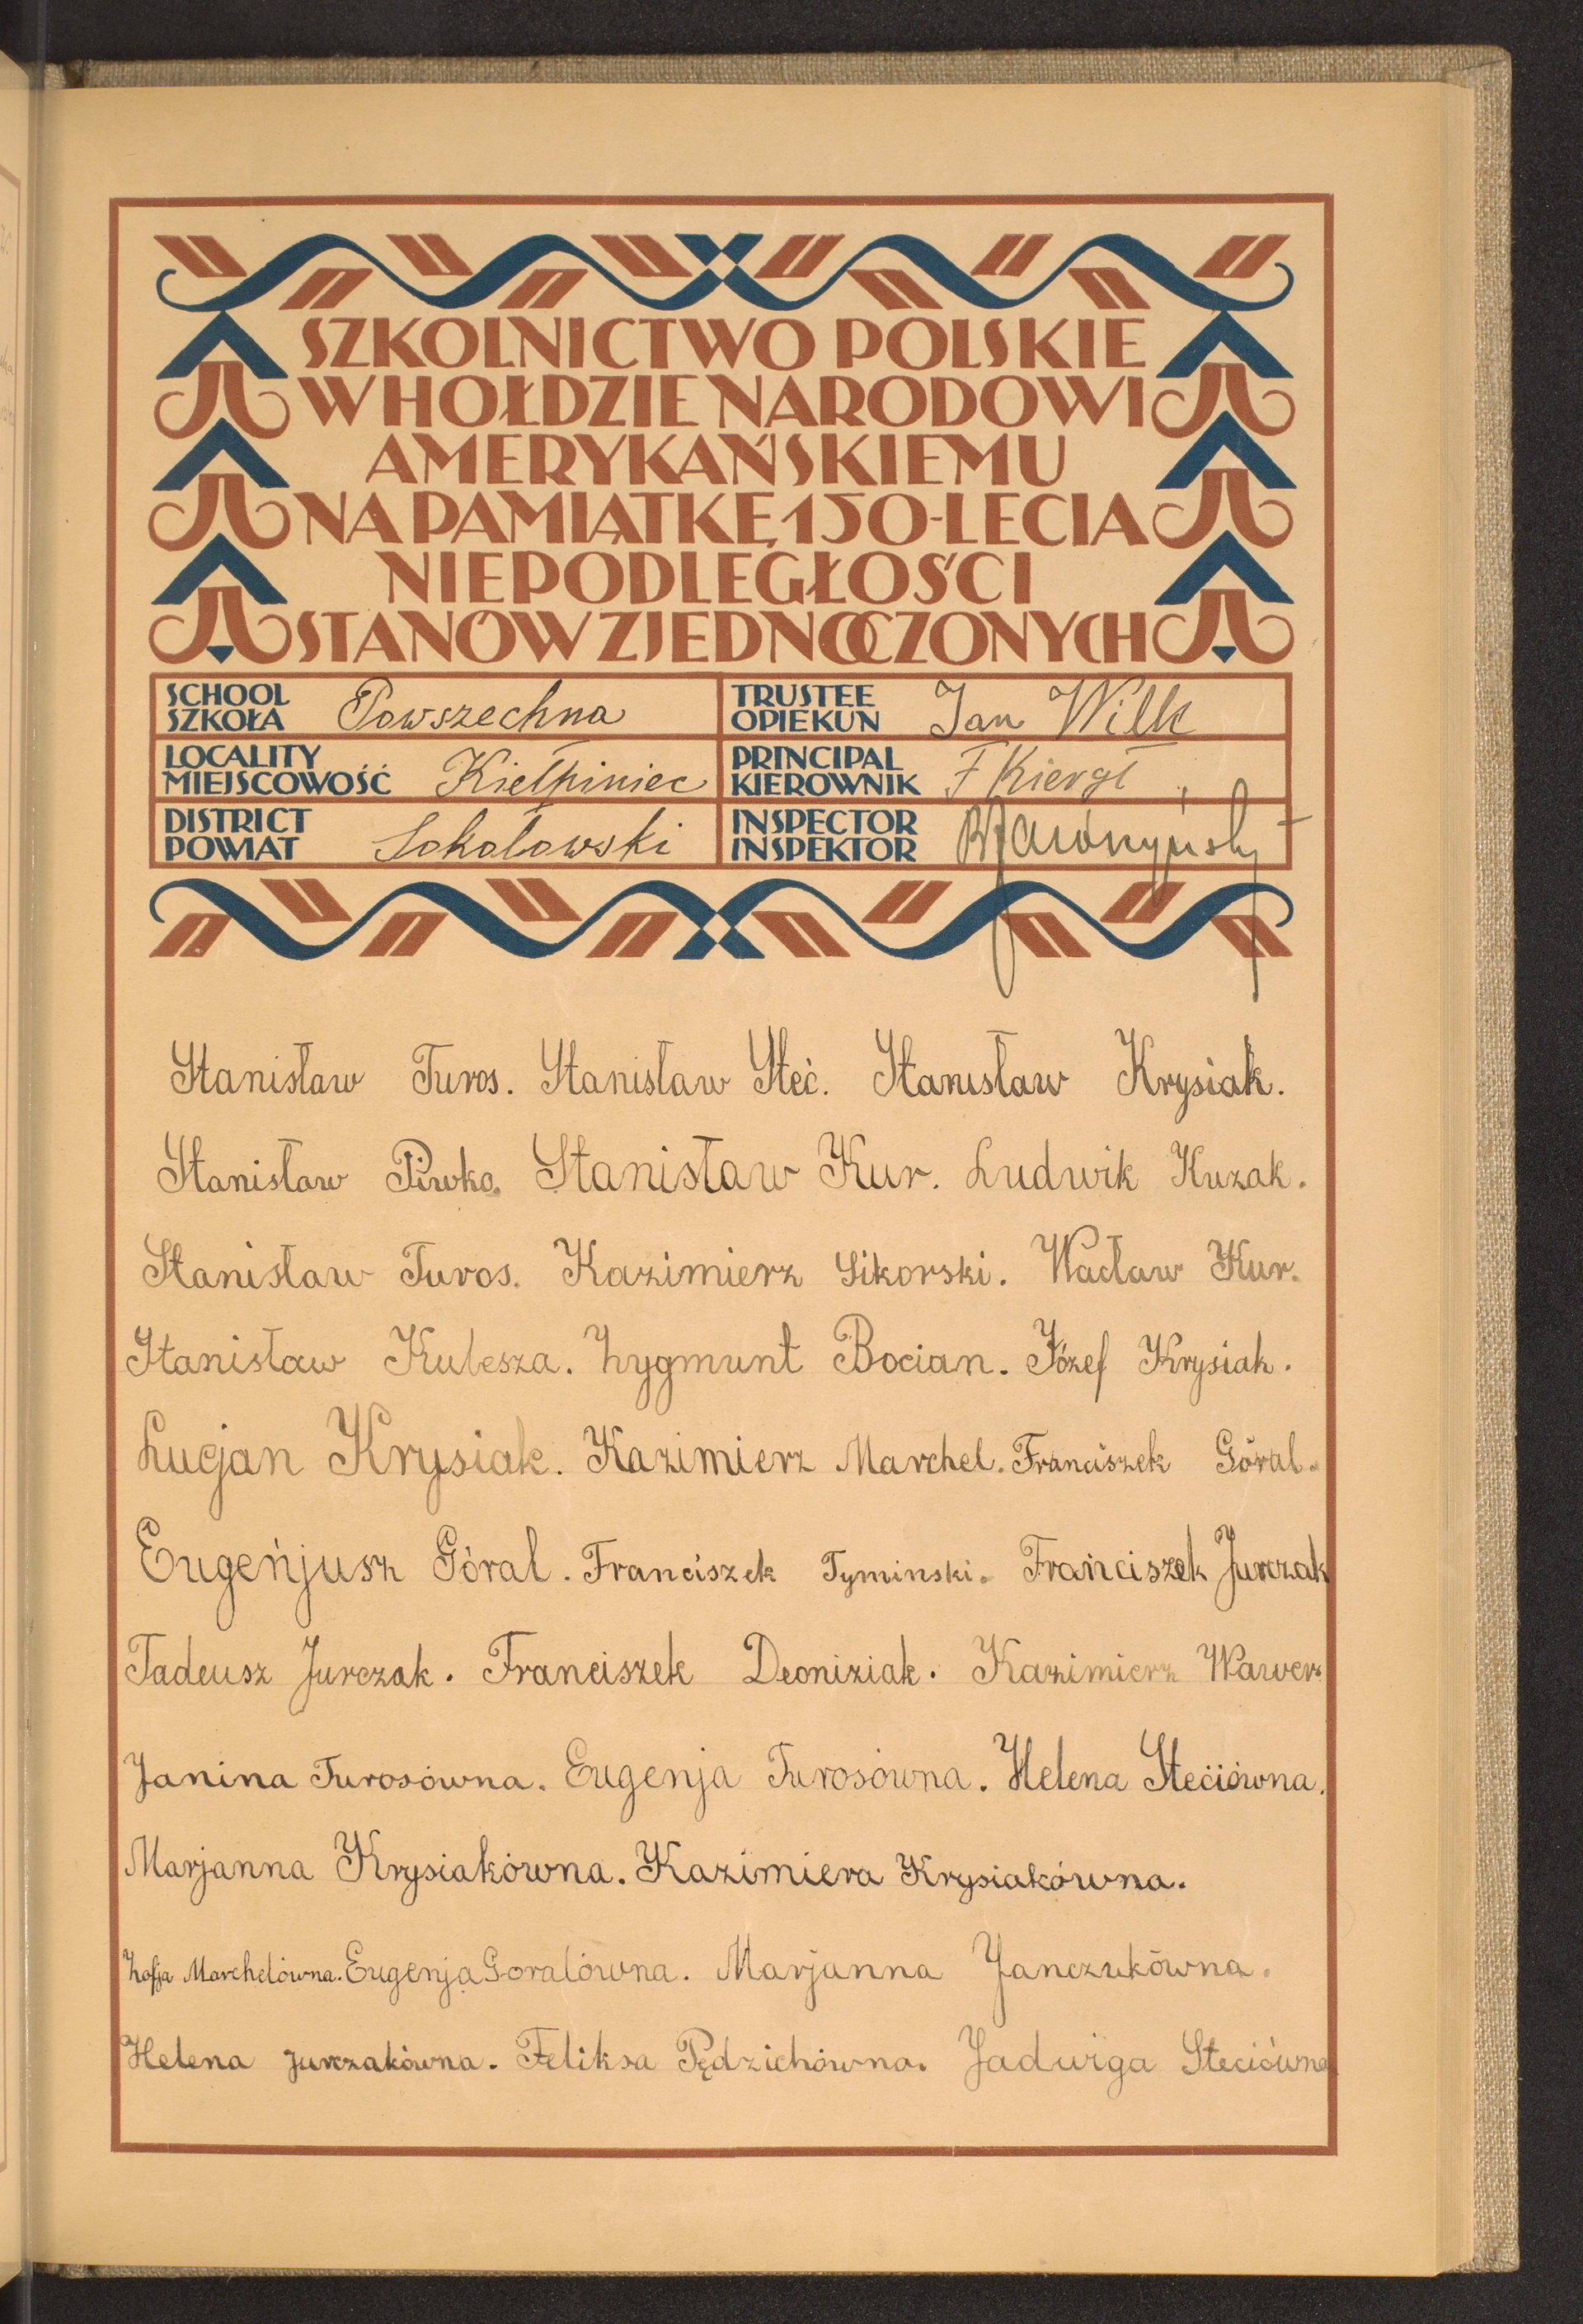 SZKOLNICTWO POLSKIE
W HOŁDZIE NARODOWI
AMERYKAŃSKIEMU
NA PAMIĄTKĘ 150-LECIA
NIEPODLEGŁOŚCI
STANÓW ZJEDNOCZONYCH
SCHOOL
SZKOŁA Powszechna
TRUSTEE
OPIEKUN Jan Wilk
LOCALITY
MIEJSCOWOŚĆ Kiełpiniec
PRINCIPAL
KIEROWNIK F Kiergł
DISTRICT
POWIAT Sokołowski
INSPECTOR
INSPEKTOR
Stanisław Turos. Stanisław Steć. Stanisław Krysiak.
Stanisław Piwko. Stanisław Kur. Ludwik Kuzak.
Stanisław Turos. Kazimierz Sikorski. Wacław Kur.
Stanisław Kulesza. Zygmunt Bocian. Józef Krysiak.
Lucjan Krysiak. Kazimierz Marchel. Franciszek Góral.
Eugeńjusz Góral. Franciszek Tyminski. Frańciszek Jurczak
Tadeusz Jurczak. Franciszek Deoniziak. Kazimierz Wawer
Janina Turosówna. Eugenja Turosówna. Helena Stećiówna.
Marjanna Krysiakówna. Kazimiera Krysiakówna.
Zofja Marchelówna. Eugenja Goralówna. Marjanna Janczukówna.
Helena Jurczakówna. Feliksa Pędzichówna. Jadwiga Steciówna